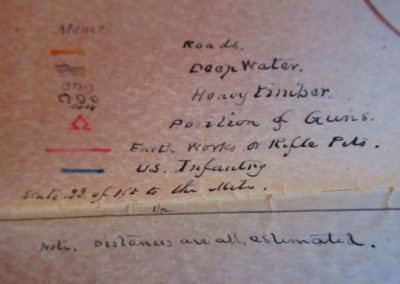 Memo
Roads.
Deep Water.
Heavy timber.
Position of Guns.
Earth Works or Rifle Pits.
U.S. Infantry
Scale .33. of 1st to the Mile.
1/2
Note. Distances are all estimated.